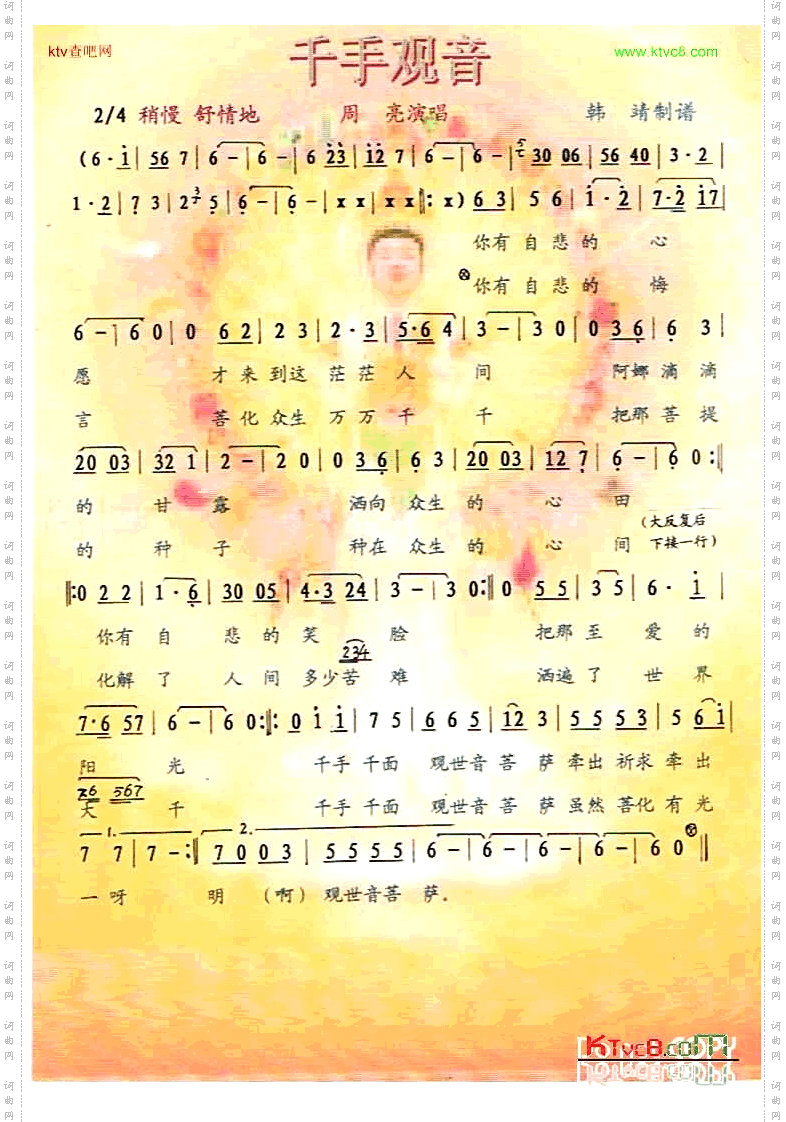 ktv查吧网
www.ktvc8.com
千手观音
2/4 稍慢 舒情地 周 亮演唱 韩 靖制谱
(6·i|56 7|6-|6-|6 23|12 7|6-|6-|30 06|56 40|3·2|
1·2|7 3|2 5|6-|6-|x x|x x:|x) 63|5 56|1·2|7·2 17|
你有自悲的 心
你有自悲的 悔
6-|60|0 62|2 3|2·3|5·6 4|3-|30|0 36|6 3|
愿 才来到这 茫茫人 间 阿娜滴滴
言 菩化众生 万万千 千 把那菩提
20 03|32 1|2-|20|0 36|6 3|20 03|12 7|6-|60:|
的 甘露 洒向 众生的 心田
(大反复后
的 种子 种在 众生的 心间 下接一行)
|:0 22|1·6|30 05|4·3 24|3-|30:|0 55|35|6·i|
你有自 悲的笑 脸 把那至 爱的
234
化解了 人间多少苦 难 洒遍了 世界
7·6 57|6-|60:|:0 i i|7 5|66 5|12 3|55 53|5 6i|
阳 光 千手千面 观世音菩 萨牵出祈求牵出
26 567
大 千 千手千面 观世音菩 萨虽然菩化有光
1. 2.
7 7|7-:|70 03|55 55|6-|6-|6-|60||
一呀 明 (啊) 观世音菩 萨.
KTvc8.com
词曲网